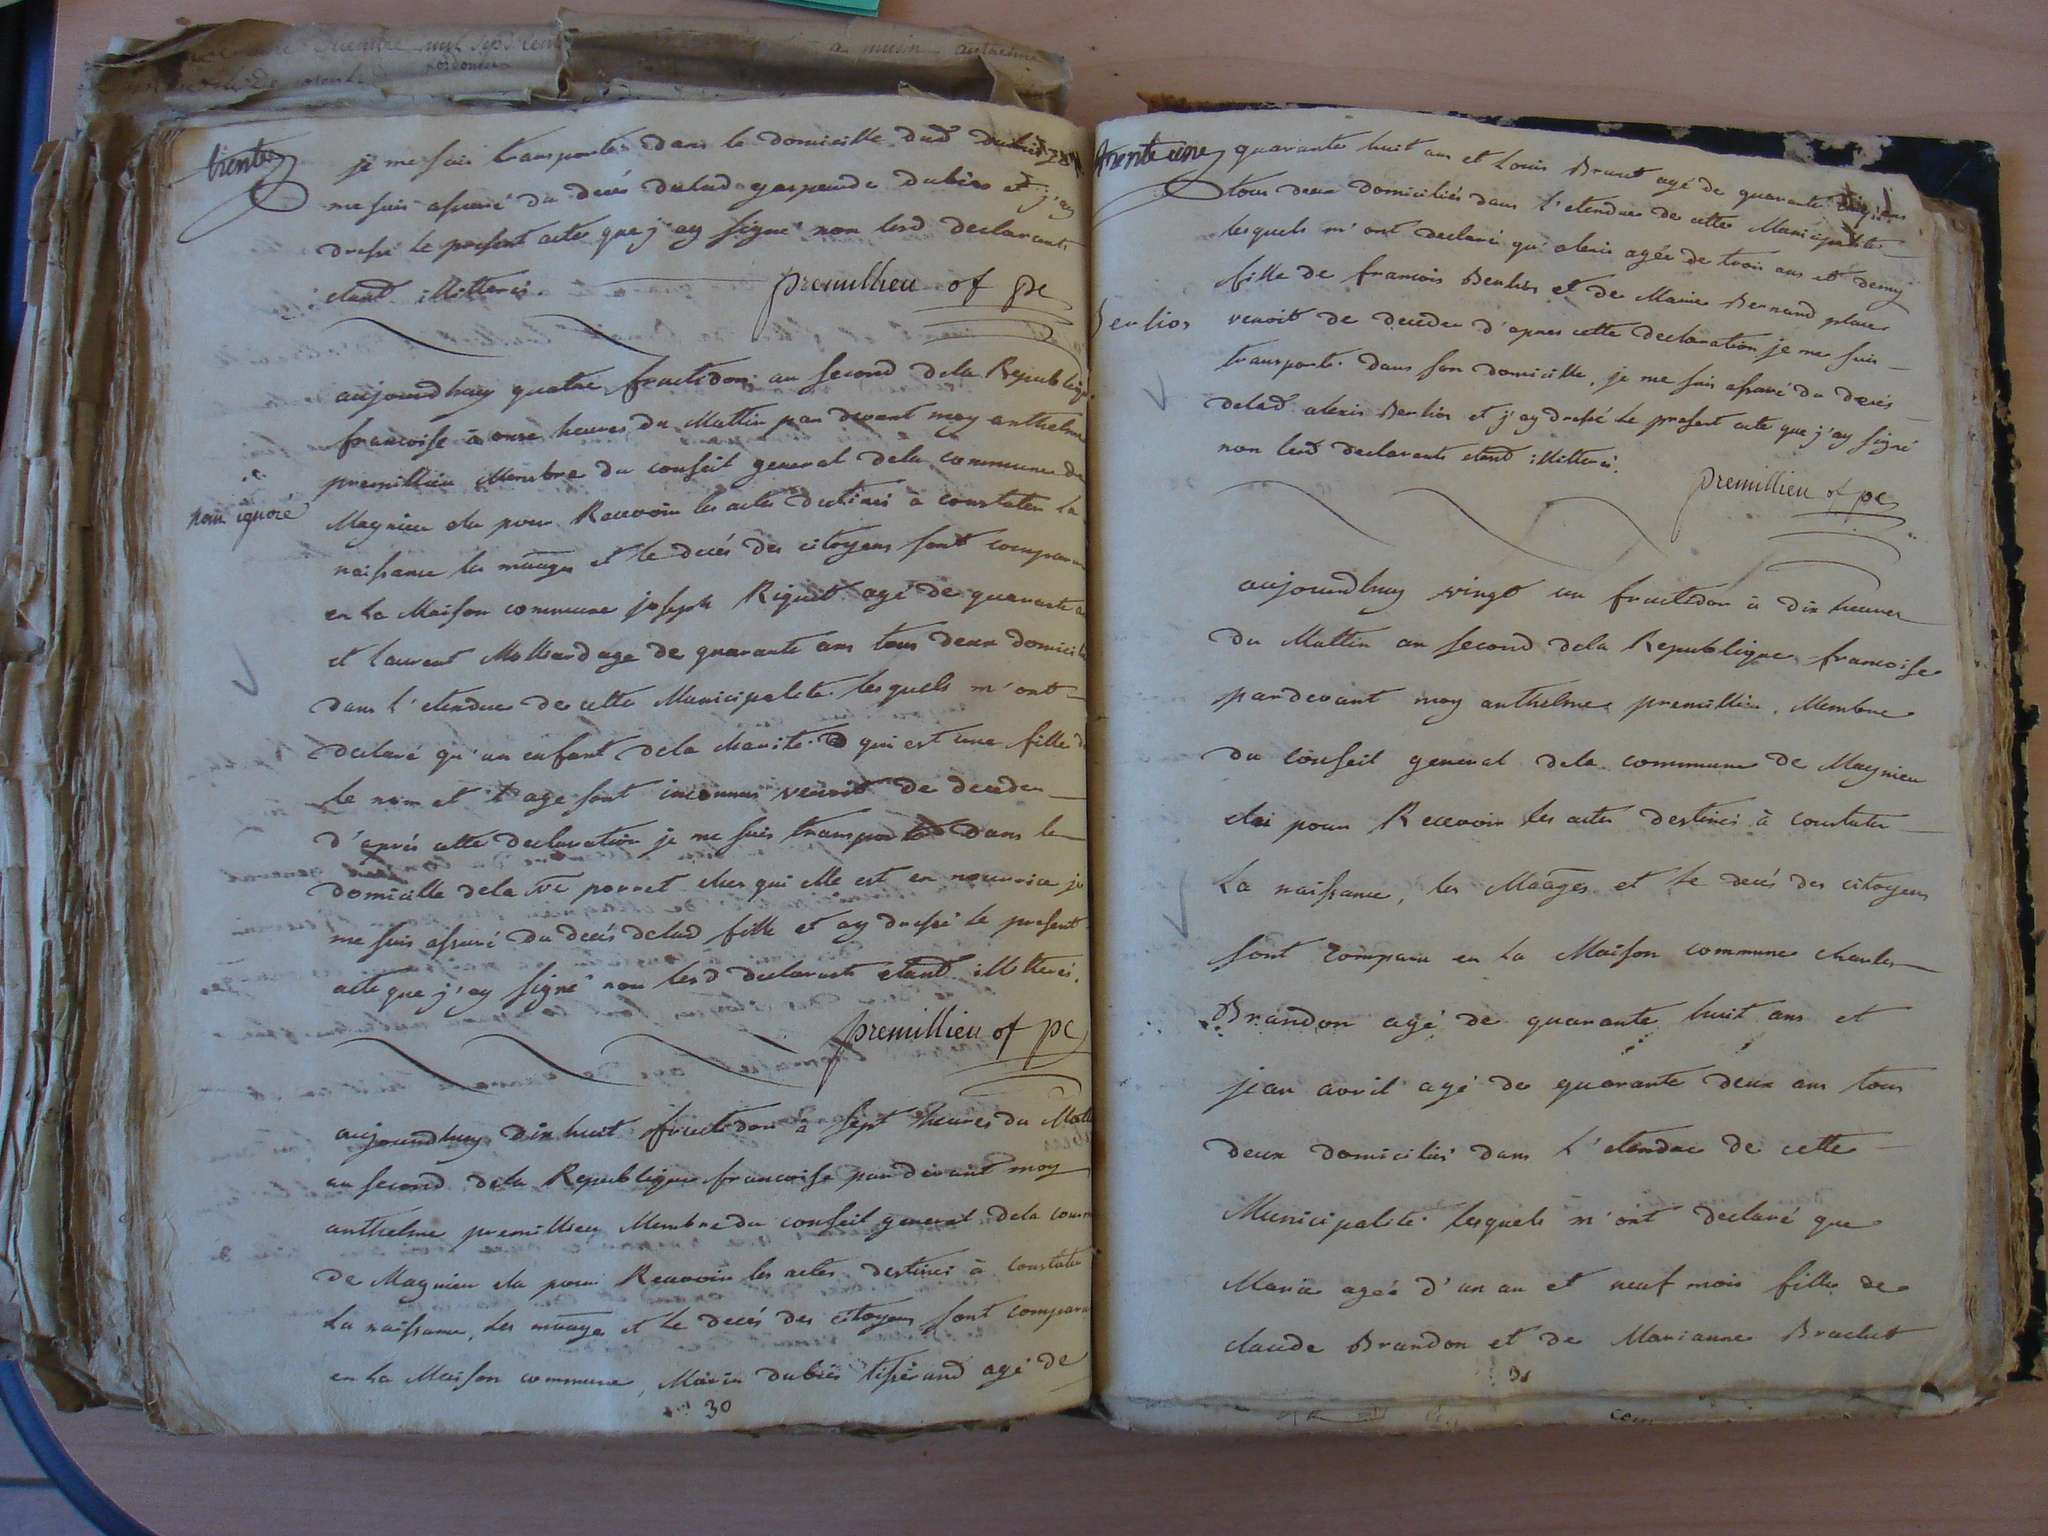 trente
je me suis transporté dans le domicille dud dubiez
me suis assuré du decés delad gaspande dubiez et j'ay
dressé le present acte que j'ay signé non lesd declarants
etant illitterés.
premillieu of pc
aujourdhuy quatre fructidor an second dela Republique
francoise à onze heures du Mattin par devant moy anthelme
premillieu Membre du conseil general dela commune de
nom ignoré
Magnieu elu pour Recevoir les actes destinés à constater la
naissance les maages et le decés des citoyens sont comparu
en la Maison commune joseph Riguet agé de quarante a
et laurent Molliard age de quarante ans tous deux domiciliés
dans l'etendue de cette Municipalité lesquels m'ont
declaré qu'un enfant dela charité qui est une fille d
le nom et l'age sont inconnus venoit de deceder
d'aprés cette declaration je me suis transporté dans le
domicille dela vve porret chez qui elle est en nourrice je
me suis assuré du decés delad fille et ay dressé le present
acte que j'ay signé non lesd declarants etant illitterés.
premillieu of pc
aujourdhuy dix huit fructidor à sept heures du Matt
an second dela Republique francoise par devant moy
anthelme premillieu Membre du conseil general dela comm
de Magnieu elu pour Recevoir les actes destinés à constater
la naissance, les maages et le decés des citoyens sont comparu
en la Maison commune, Marin dubiez tisserand agé de
30
trente une
quarante huit ans et Louis Brunet agé de quarante ans
tous deux domiciliés dans l'etendue de cette Municipalité
lesquels m'ont declaré qu'alexis agée de trois ans et demy
fille de francois Berlioz et de Marie Bernand place
Berlioz
venoit de deceder d'apres cette declaration je me suis
transporté dans son domicille, je me suis assuré du decés
delad alexis Berlioz et j'ay dressé le present acte que j'ay signé
non lesd declarants etant illitterés.
premillieu of pc
aujourdhuy vingt un fructidor à dix heures
du Mattin an second dela Republique francoise
pardevant moy anthelme premillieu, Membre
du conseil general dela commune de Magnieu
elu pour Recevoir les actes destinés à constater
la naissance, les Maages et le decés des citoyens
sont comparu en la Maison commune charles
Brandon agé de quarante huit ans et
jean avril agé de quarante deux ans tous
deux domiciliés dans l'etendue de cette
Municipalité lesquels m'ont declaré que
Marie agée d'un an et neuf mois fille de
claude Brandon et de Marianne Brachet
31